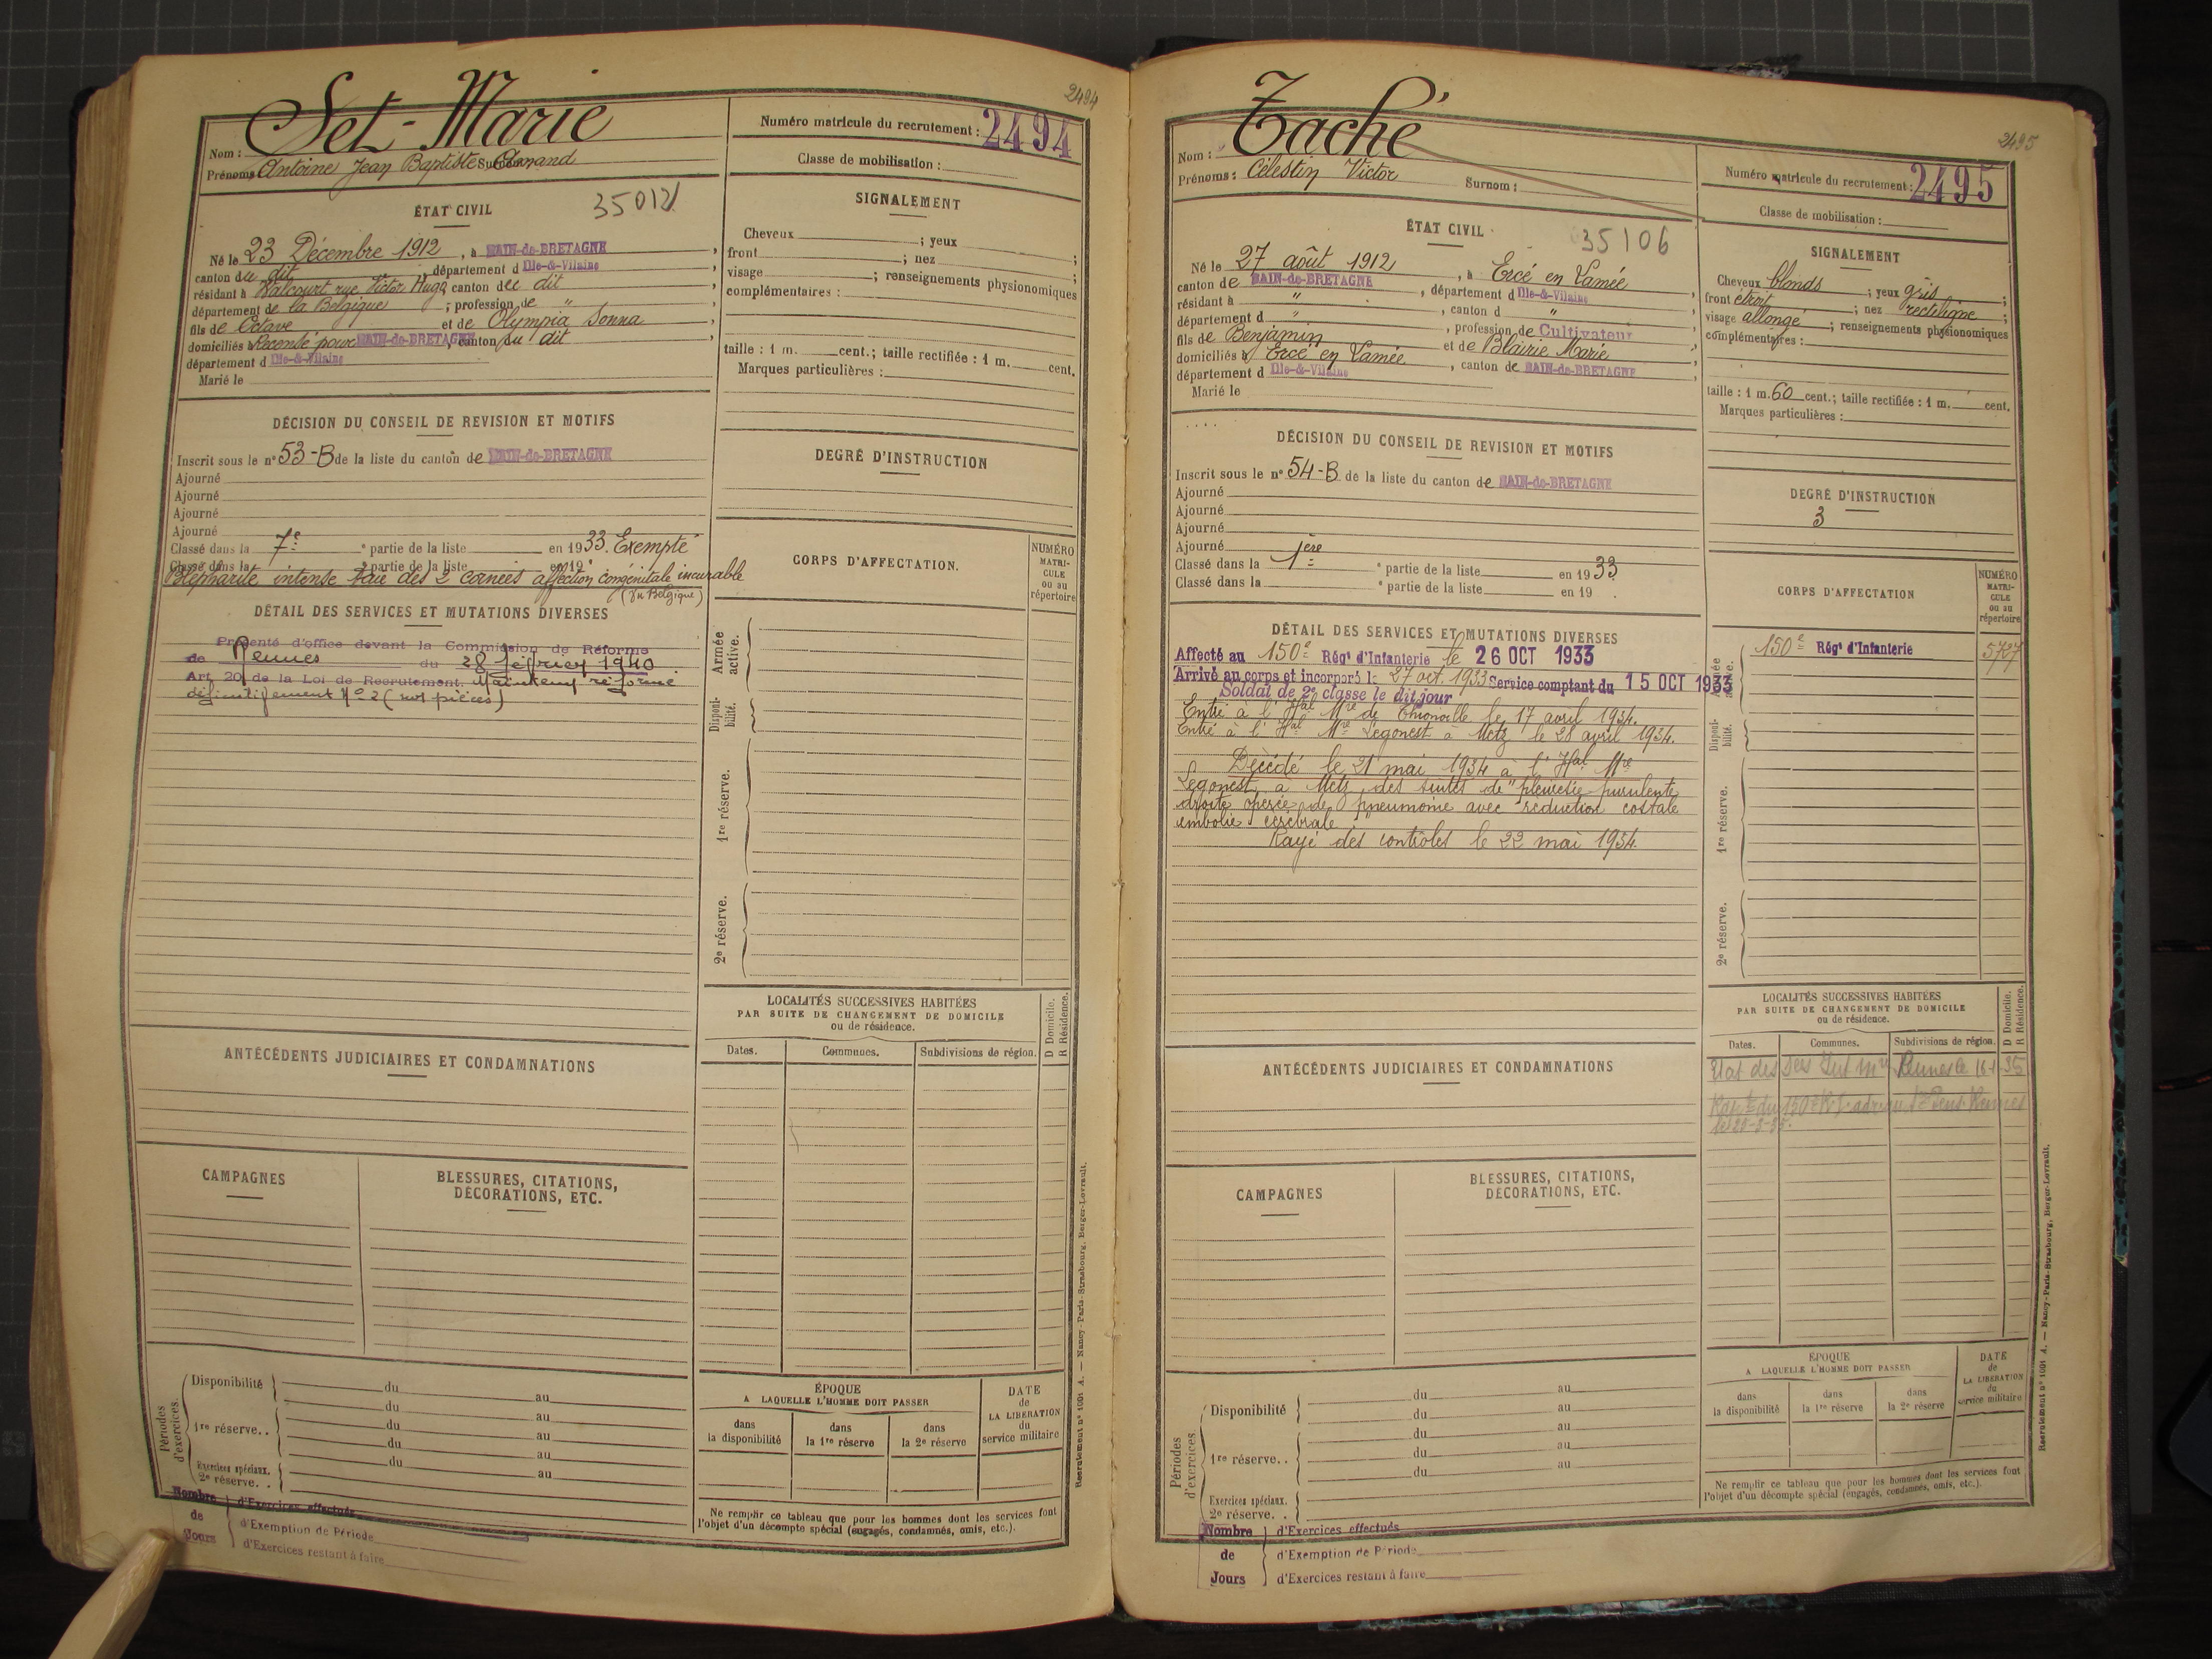 2494
Nom : Set-Marie
Prénoms Antoine Jean Baptiste Surnom : Armand
Numéro matricule du recrutement : 2494
Classe de mobilisation :
ÉTAT CIVIL
35012
Né le 23 Décembre 1912, à BAIN-de-BRETAGNE,
canton du dit, département d Ille-&-Vilaine,
résidant à Walcourt rue Victor Hugo, canton du dit,
département de la Belgique ; profession de "
fils de Octave et de Olympia Sonna,
domiciliés à Recensé pour BAIN-de-BRETAGNE, canton du dit
département d Ille-&-Vilaine
Marié le
SIGNALEMENT
Cheveux ; yeux ;
front ; nez ;
visage ; renseignements physionomiques
complémentaires :
taille : 1 m. cent.; taille rectifiée : 1 m. cent.
Marques particulières :
DÉCISION DU CONSEIL DE REVISION ET MOTIFS
Inscrit sous le n° 53-B de la liste du canton de BAIN-de-BRETAGNE
Ajourné
Ajourné
Ajourné
Ajourné
Classé dans la 7e ° partie de la liste en 1933. Exempté
Classé dans la ° partie de la liste en 19
Blépharite intense taie des 2 cornées affection congénitale incurable
(en Belgique)
DEGRÉ D'INSTRUCTION
DÉTAIL DES SERVICES ET MUTATIONS DIVERSES
Présenté d'office devant la Commission de Réforme
de Rennes du 28 février 1940
Art. 20 de la Loi de Recrutement. Maintenu réformé
définitivement N° 2 (sur pièces)
CORPS D'AFFECTATION.
NUMÉRO
MATRI-
CULE
ou au
répertoire
Armée
active.
Disponi-
bilité.
1re réserve.
2e réserve.
ANTÉCÉDENTS JUDICIAIRES ET CONDAMNATIONS
LOCALITÉS SUCCESSIVES HABITÉES
PAR SUITE DE CHANGEMENT DE DOMICILE
ou de résidence.
D Domicile.
R Résidence.
Dates. Communes. Subdivisions de région.
CAMPAGNES
BLESSURES, CITATIONS,
DÉCORATIONS, ETC.
Périodes
d'exercices.
Disponibilité du au
du au
1re réserve.. du au
du au
du au
Exercices spéciaux.
2e réserve. .
au
Nombre
de
Jours
d'Exercices effectués
d'Exemption de Période
d'Exercices restant à faire
ÉPOQUE
A LAQUELLE L'HOMME DOIT PASSER
dans
la disponibilité
dans
la 1re réserve
dans
la 2e réserve
DATE
de
LA LIBERATION
du
service militaire
Ne remplir ce tableau que pour les hommes dont les services font
l'objet d'un décompte spécial (engagés, condamnés, omis, etc.).
Recrutement n° 1001 A. — Nancy-Paris-Strasbourg, Berger-Levrault.
2495
Nom : Taché
Prénoms : Célestin Victor Surnom :
Numéro matricule du recrutement : 2495
Classe de mobilisation :
ÉTAT CIVIL
35106
Né le 27 août 1912, à Ercé en Lamée
canton de BAIN-de-BRETAGNE, département d Ille-&-Vilaine,
résidant à ", canton d ",
département d ", profession de Cultivateur
fils de Benjamin et de Blairie Marie,
domiciliés à Ercé en Lamée, canton de BAIN-de-BRETAGNE,
département d Ille-&-Vilaine
Marié le
SIGNALEMENT
Cheveux blonds ; yeux gris ;
front étroit ; nez rectiligne ;
visage allongé ; renseignements physionomiques
complémentaires :
taille : 1 m. 60 cent.; taille rectifiée : 1 m. cent.
Marques particulières :
DÉCISION DU CONSEIL DE REVISION ET MOTIFS
Inscrit sous le n° 54-B de la liste du canton de BAIN-de-BRETAGNE
Ajourné
Ajourné
Ajourné
Ajourné
Classé dans la 1ère ° partie de la liste en 1933.
Classé dans la ° partie de la liste en 19 .
DEGRÉ D'INSTRUCTION
3
DÉTAIL DES SERVICES ET MUTATIONS DIVERSES
Affecté au 150e Régt d'Infanterie le 26 OCT 1933
Arrivé au corps et incorporé le 27 oct. 1933 Service comptant du 15 OCT 1933
Soldat de 2e classe le dit jour
Entré à l'Hal Mre de Thionville le 17 avril 1934.
Entré à l'Hal Mre Legonest à Metz le 28 avril 1934.
Décédé le 21 mai 1934 à l'Hal Mre
Legonest à Metz des suites de "pleurésie purulente
droite opérée de pneumonie avec réduction costale
embolie cérébrale"
Rayé des contrôles le 22 mai 1934.
CORPS D'AFFECTATION
NUMÉRO
MATRI-
CULE
ou au
répertoire
Armée
active.
150e Régt d'Infanterie 5727
Disponi-
bilité.
1re réserve.
2e réserve.
ANTÉCÉDENTS JUDICIAIRES ET CONDAMNATIONS
LOCALITÉS SUCCESSIVES HABITÉES
PAR SUITE DE CHANGEMENT DE DOMICILE
ou de résidence.
D Domicile.
R Résidence.
Dates. Communes. Subdivisions de région.
Etat des Sces Int Mre Rennes le 16-1-35
du 150e R.I. Rennes
CAMPAGNES
BLESSURES, CITATIONS,
DÉCORATIONS, ETC.
Périodes
d'exercices.
Disponibilité du au
du au
1re réserve.. du au
du au
du au
Exercices spéciaux.
2e réserve. .
Nombre
de
Jours
d'Exercices effectués
d'Exemption de Période
d'Exercices restant à faire
ÉPOQUE
A LAQUELLE L'HOMME DOIT PASSER
dans
la disponibilité
dans
la 1re réserve
dans
la 2e réserve
DATE
de
LA LIBERATION
du
service militaire
Ne remplir ce tableau que pour les hommes dont les services font
l'objet d'un décompte spécial (engagés, condamnés, omis, etc.).
Recrutement n° 1001 A. — Nancy-Paris-Strasbourg, Berger-Levrault.